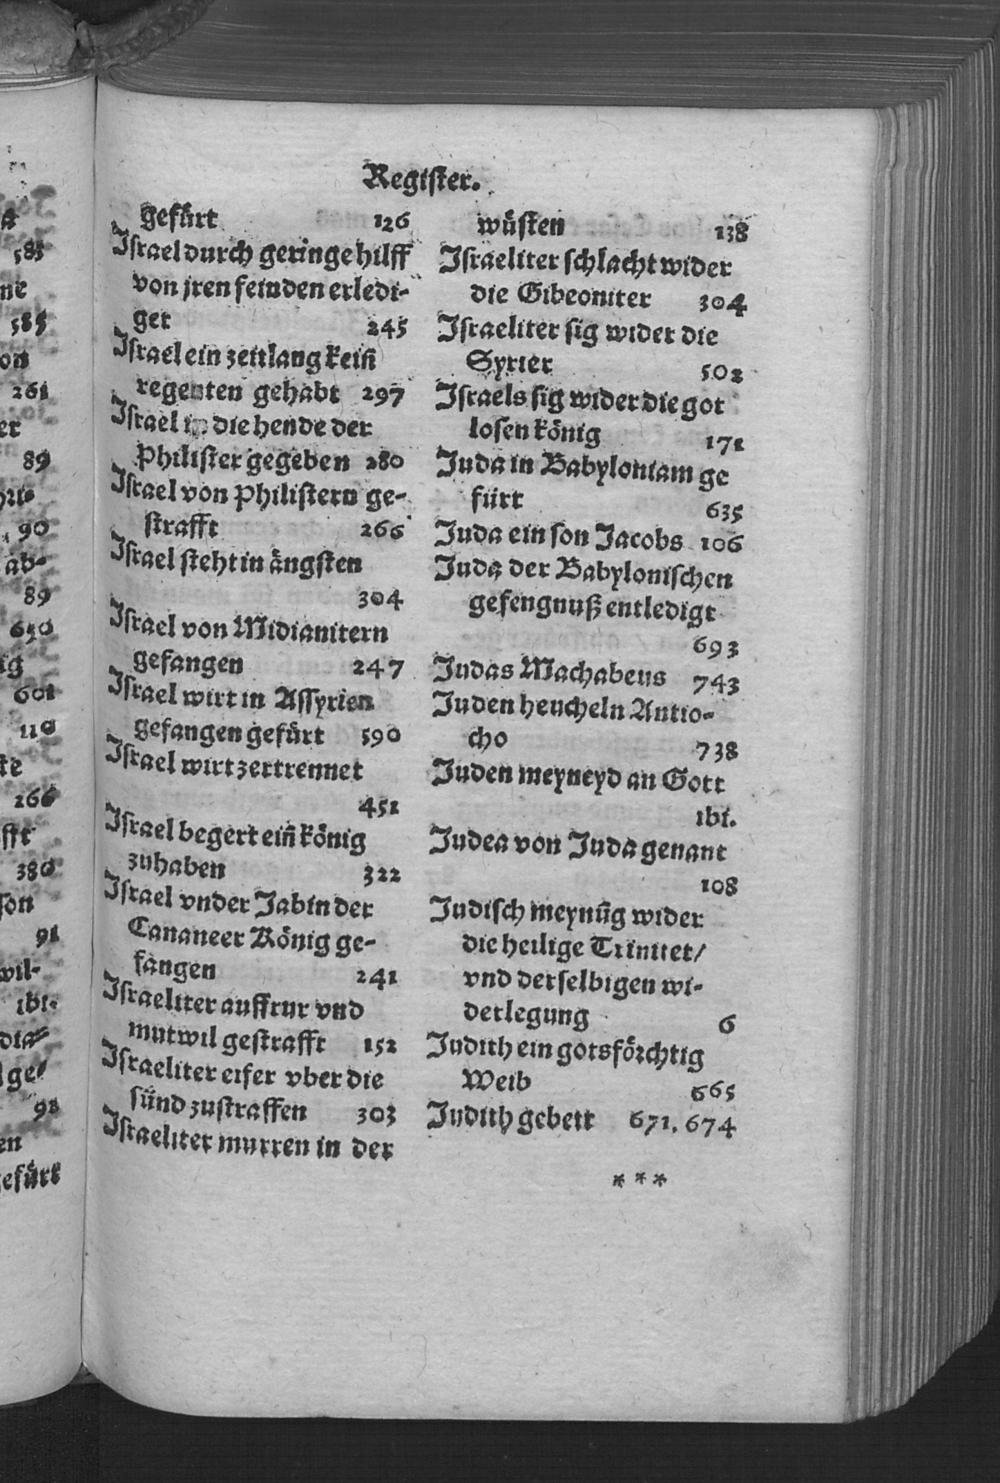 Register.
gefürt 126
Israel durch geringe hilff
von jren feinden erledi-
get 245
Israel ein zeitlang keiñ
regenten gehabt 297
Israel in die hende der
Philister gegeben 280
Israel von Philistern ge-
strafft 266
Israel steht in ängsten
304
Israel von Midianitern
gefangen 247
Israel wirt in Assyrien
gefangen gefürt 590
Israel wirt zertrennet
451
Israel begert eiñ König
zuhaben 322
Israel vnder Jabin der
Cananeer König ge-
fangen 241
Israeliter auffrur vnd
mutwil gestrafft 152
Israeliter eifer vber die
sünd zustraffen 303
Israeliter murren in der
wüsten 138
Israeliter schlacht wider
die Gibeoniter 304
Israeliter sig wider die
Syrier 502
Israels sig wider die got
losen König 171
Juda in Babyloniam ge
fürt 635
Juda ein son Jacobs 106
Juda der Babylonischen
gefengnuß entledigt
693
Judas Machabeus 743
Juden heucheln Antio-
cho 738
Juden meyneyd an Gott
ibi.
Judea von Juda genant
108
Judisch meynũg wider
die heilige Trinitet/
vnd derselbigen wi-
derlegung 6
Judith ein gotsförchtig
Weib 665
Judith gebett 671. 674
* * *
583
ne
585
on
261
er
89
90
ab-
89
650
ig
601
110
te
266
fft
380
son
91
wil-
ibi.
dia-
ge-
98
en
gefürt